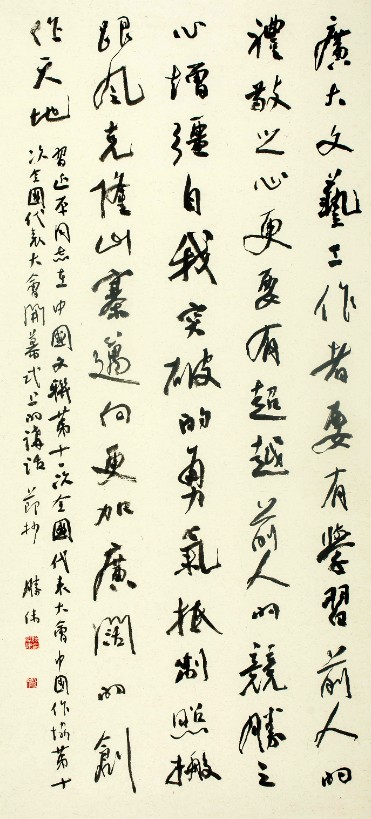 廣大文藝工作者要有學習前人的
禮敬之心更要有超越前人的競勝之
心增彊自我突破的勇氣抵制照搬
跟風克隆山寨邁向更加廣闊的創
作天地
習近平同志在中國文聯第十一次全國代表大會中國作協第十
次全國代表大會開幕式上的講話 節抄 勝偉